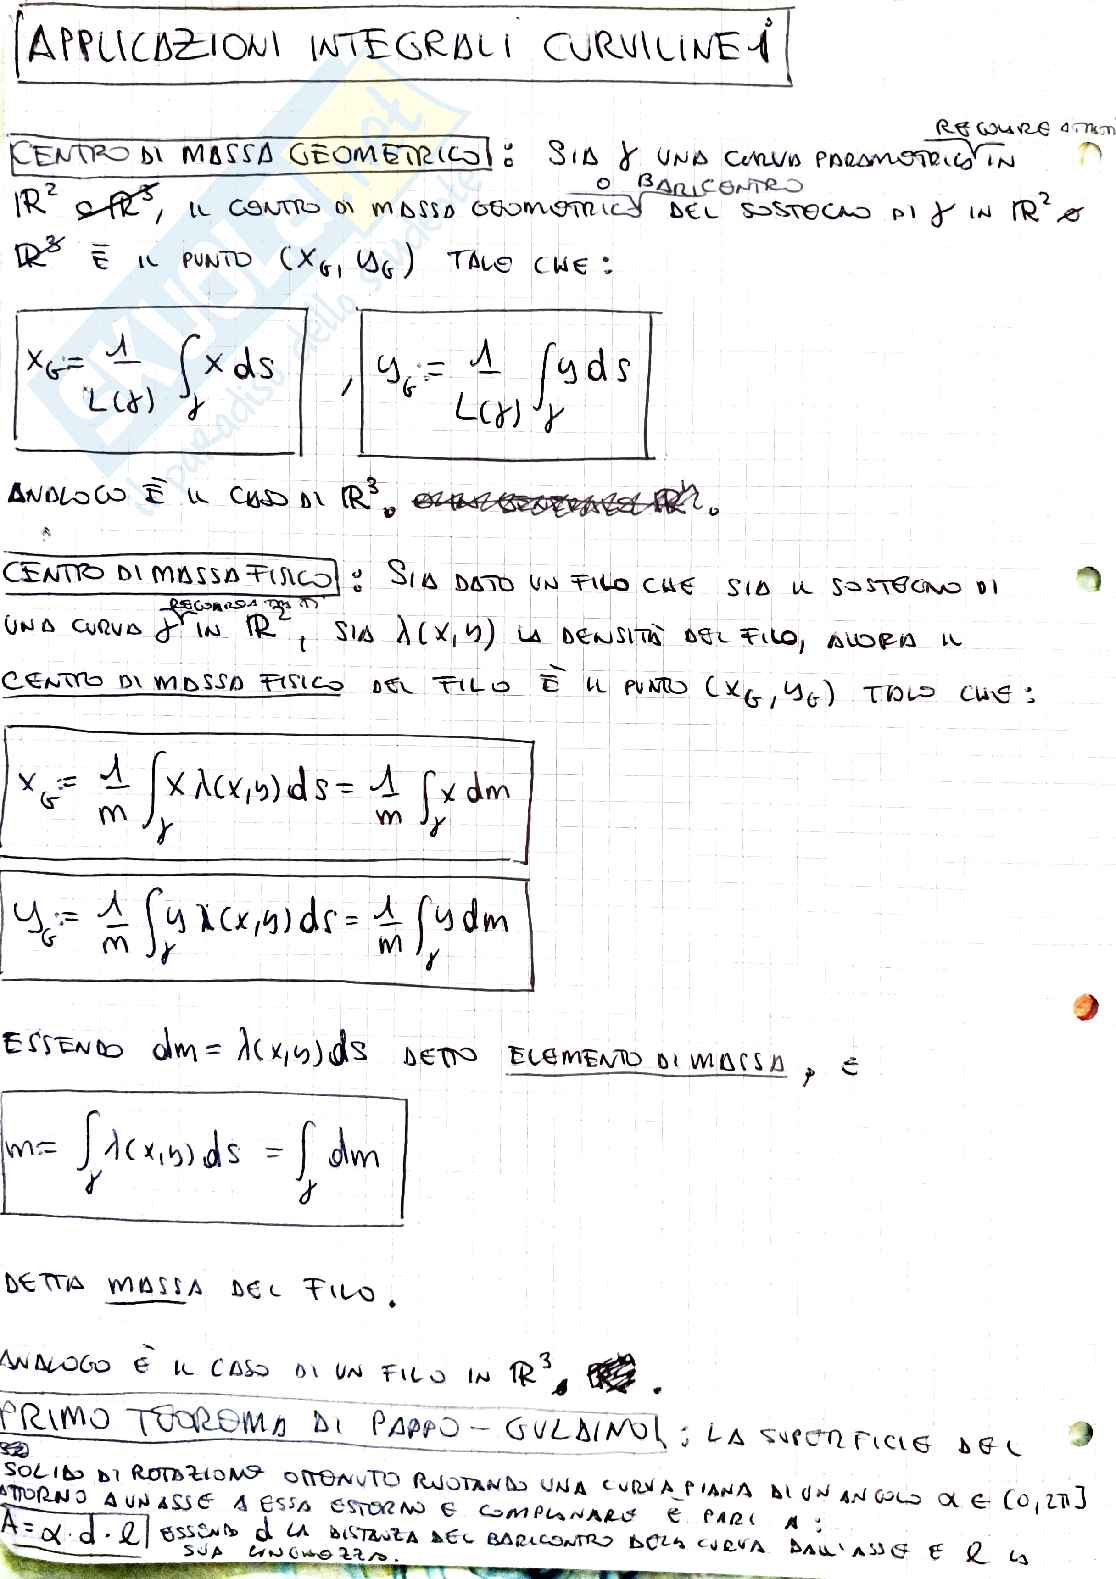 APPLICAZIONI INTEGRALI CURVILINEI
CENTRO DI MASSA GEOMETRICO: SIA γ UNA CURVA PARAMETRICA REGOLARE A TRATTI IN
ℝ² o ℝ³, IL CENTRO DI MASSA GEOMETRICO O BARICENTRO DEL SOSTEGNO DI γ IN ℝ² o
ℝ³ È IL PUNTO (x_G, y_G) TALE CHE:
x_G := 1/L(γ) ∫_γ x ds , y_G := 1/L(γ) ∫_γ y ds
ANALOGO È IL CASO DI ℝ³.
CENTRO DI MASSA FISICO: SIA DATO UN FILO CHE SIA IL SOSTEGNO DI
UNA CURVA γ IN ℝ², SIA λ(x,y) LA DENSITÀ DEL FILO, ALLORA IL
CENTRO DI MASSA FISICO DEL FILO È IL PUNTO (x_G, y_G) TALE CHE:
x_G := 1/m ∫_γ x λ(x,y) ds = 1/m ∫_γ x dm
y_G := 1/m ∫_γ y λ(x,y) ds = 1/m ∫_γ y dm
ESSENDO dm = λ(x,y) ds DETTO ELEMENTO DI MASSA, E
m = ∫_γ λ(x,y) ds = ∫_γ dm
DETTA MASSA DEL FILO.
ANALOGO È IL CASO DI UN FILO IN ℝ³.
PRIMO TEOREMA DI PAPPO-GULDINO: LA SUPERFICIE DEL
SOLIDO DI ROTAZIONE OTTENUTO RUOTANDO UNA CURVA PIANA DI UN ANGOLO α ∈ (0, 2π]
ATTORNO A UN ASSE A ESSA ESTERNO E COMPLANARE È PARI A:
A = α · d · l ESSENDO d LA DISTANZA DEL BARICENTRO DELLA CURVA DALL'ASSE E l LA
SUA LUNGHEZZA.
SKUOLA.net
il paradiso dello studente